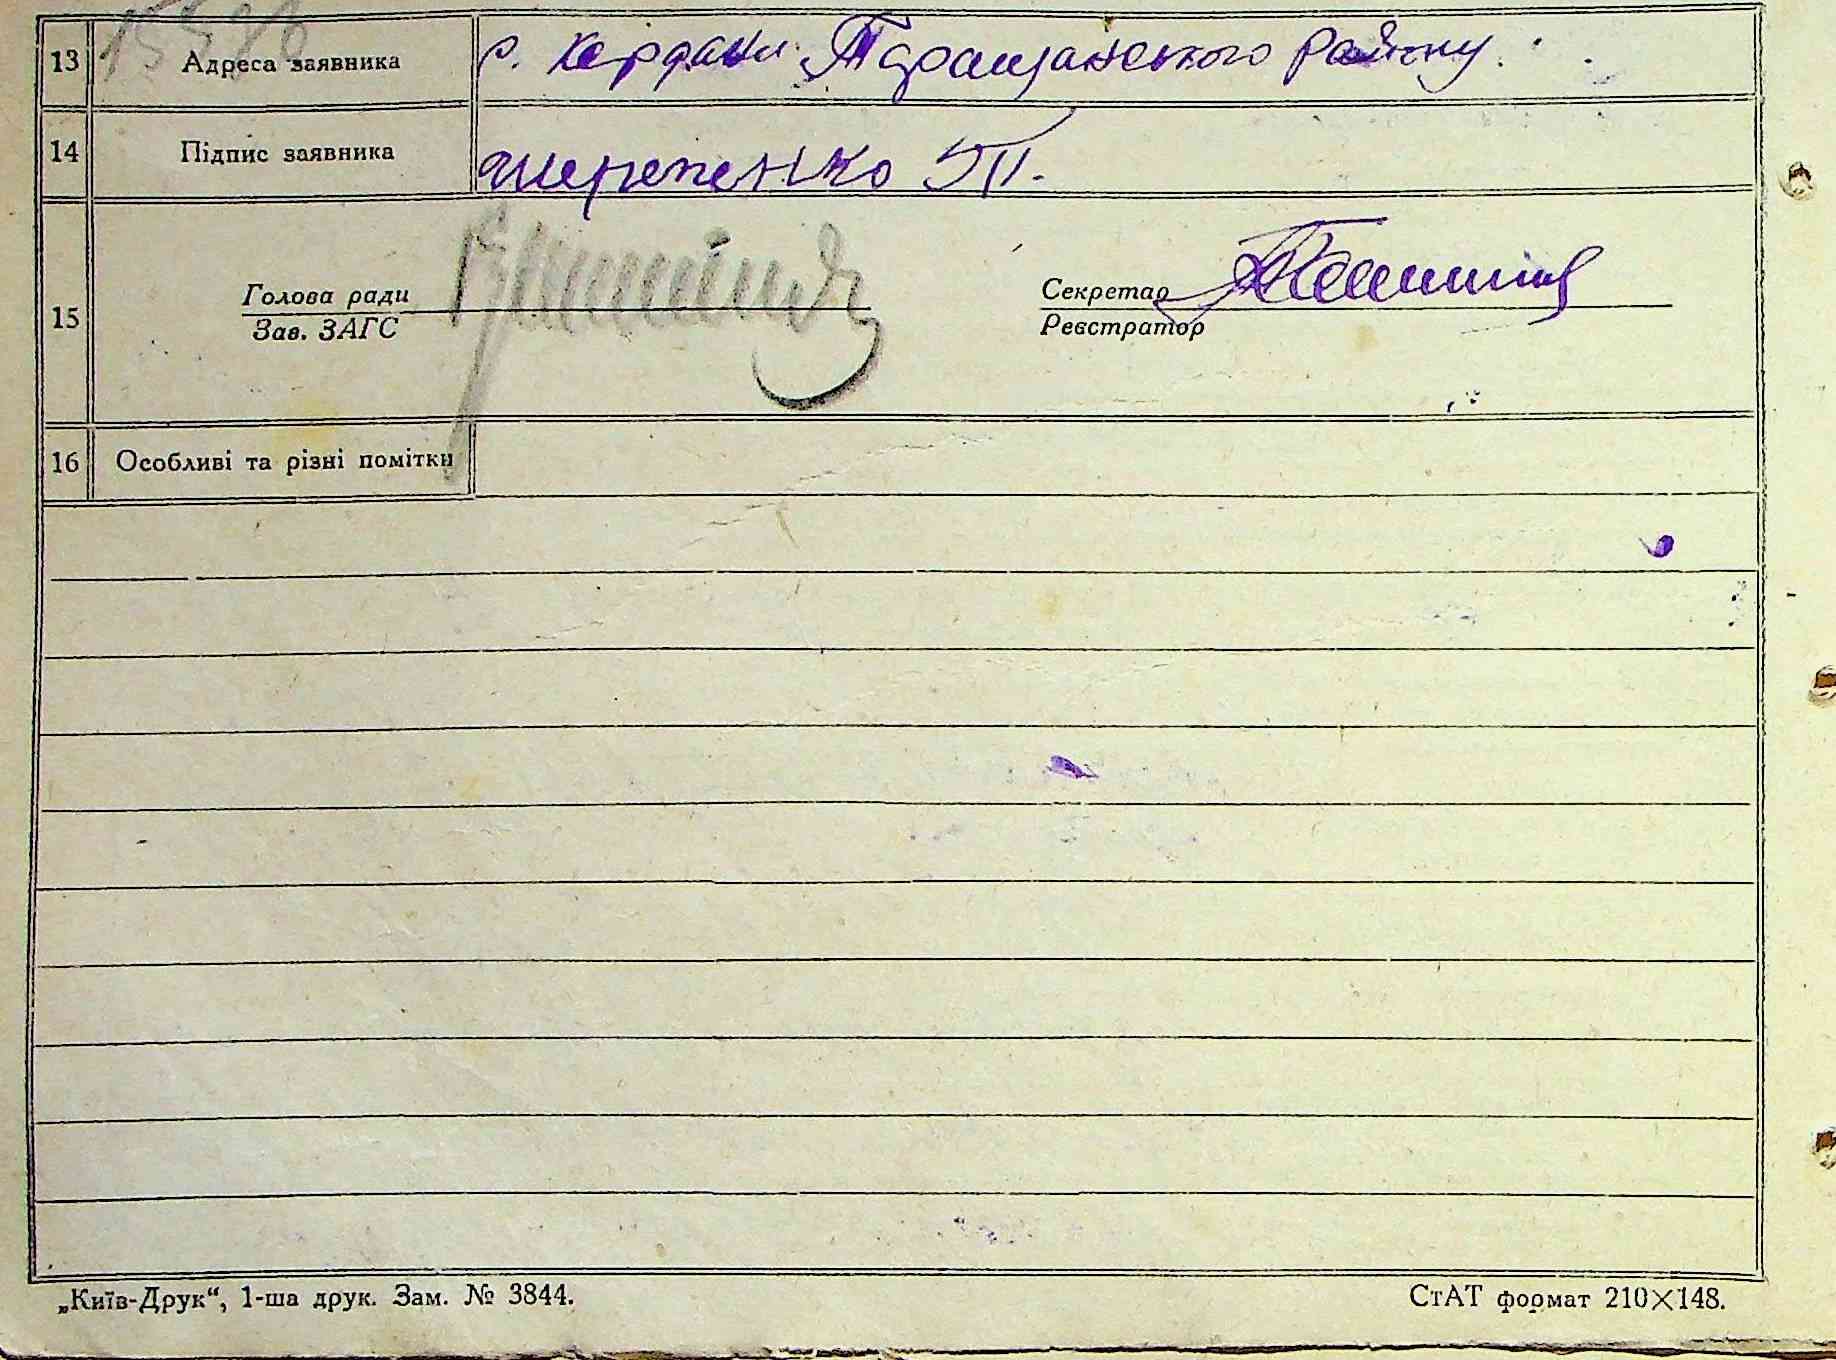 13 Адреса заявника с. Кердани Таращанського району.
14 Підпис заявника Шерепенко Т.
15 Голова ради Секретар
Зав. ЗАГС Реєстратор
16 Особливі та різні помітки
„Київ-Друк“, 1-ша друк. Зам. № 3844. СтАТ формат 210×148.